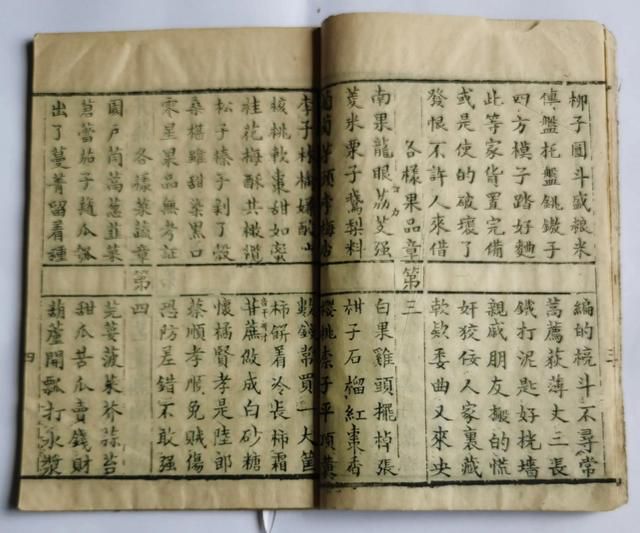 柳子圓斗盛粮米
編的梡斗不尋常
傳盤托盤銚子
蒿薦荻薄丈三長
四方模子踏好麯
鐵打泥匙好墻
此等家貨置完備
親戚朋友搬的慌
或是使的破壞了
奸狡佞人家裏藏
發恨不許人來借
軟欵委曲又來央
各樣果品章
第三
南果龍眼荔芰强
白果雞頭擺棹張
菱米栗子鵞梨料
柑子石榴紅棗香
萄芋頭李梅
櫻桃柰子平頂黄
李子林檎嫌酸
數錢常買一大筐
核桃軟棗甜如蜜
柿餅着冷長柿霜
桂花梅酥共橄欖
甘蔗做成白砂糖
松子榛子剥了殼
懷橘賢孝是陸郎
桑椹雖甜染黑口
蔡順孝順免賊傷
零星果品無考証
恐防差錯不敢强
各樣菜蔬章
第四
園戶茼蒿葱韭菜
芫荽菠菜芥蒜苔
蕾茄子瓜瓠
甜瓜苦瓜賣錢財
出了蔓菁留着種
葫蘆開瓢打水漿
三
四